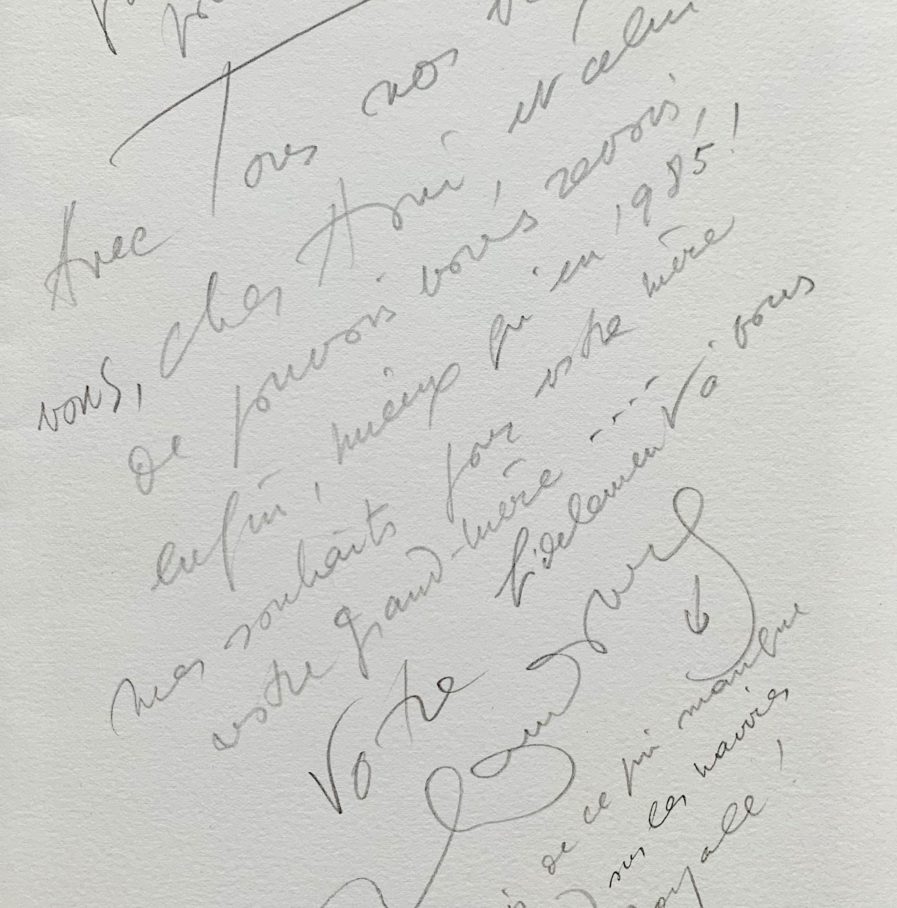 Avec Tous nos
vous, cher Ami, et celui
de pouvoir vous revoir,
enfin, mieux qu'en 1985!
mes souhaits pour votre mère
votre grand-mère ....
fidèlement à vous
Votre
de ce qui manque
sur les navires
Royale!